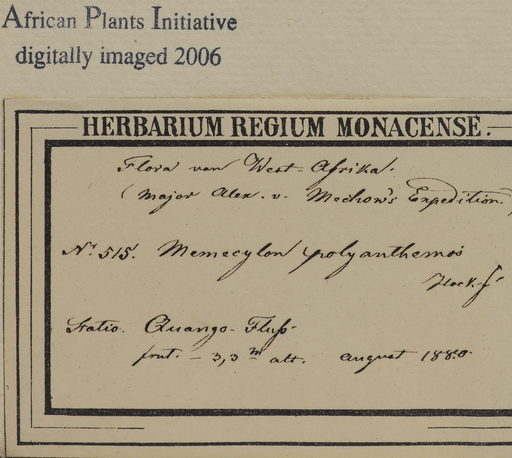 African Plants Initiative
digitally imaged 2006
HERBARIUM REGIUM MONACENSE.
Flora von West-Afrika.
(Major Alex. v. Mechow's Expedition.)
No. 515. Memecylon polyanthemos
Hook. f.
Statio. Quango-Fluß.
frut. – 3,3 m alt. August 1880.